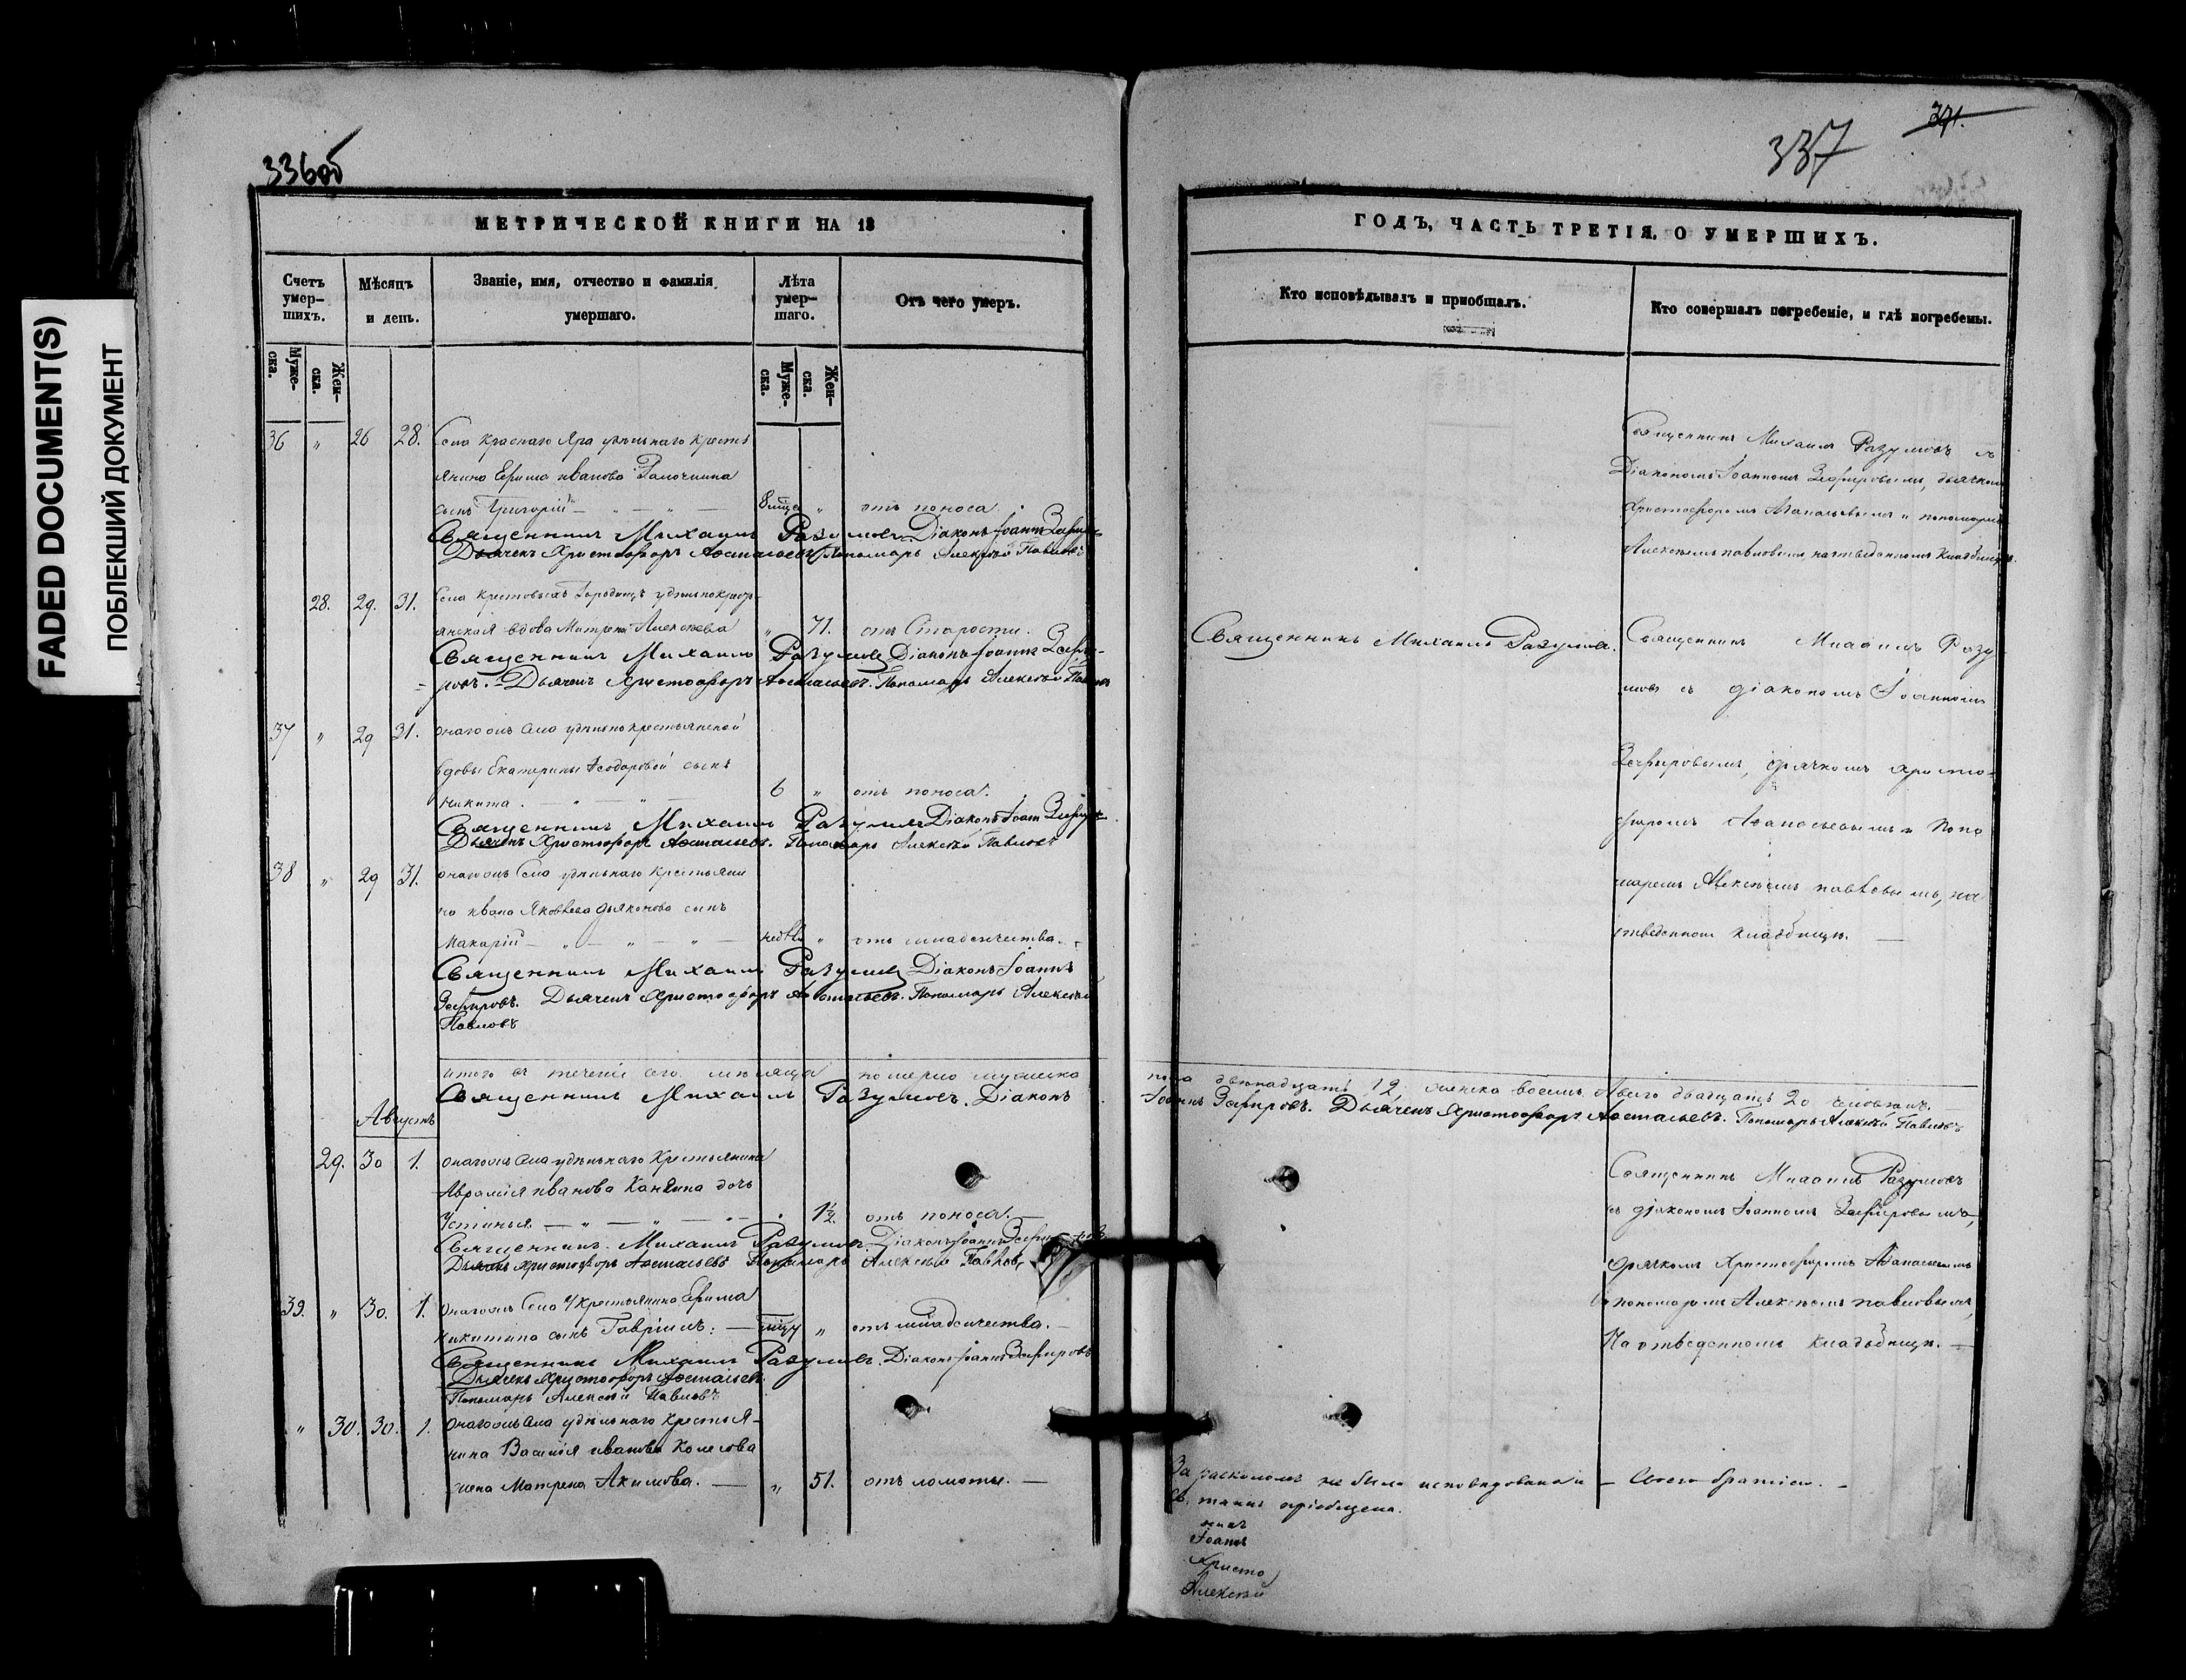 FADED DOCUMENT(S)
ПОБЛЕКШИЙ ДОКУМЕНТ
336об
МЕТРИЧЕСКОЙ КНИГИ НА 18
Счетъ умер-шихъ.
Мѣсяцъ и день.
Званіе, имя, отчество и фамилія умершаго.
Лѣта умер-шаго.
Отъ чего умеръ.
Муже-ска.
Жен-ска.
Муже-ска.
Жен-ска.
36 " 26 28. Села Краснаго Яра удѣльнаго крестья
янина Ефима Иванова
сынъ Григорій — " — " — 8 мѣся " отъ поноса.
Священникъ Михаилъ Разумовъ Діаконъ Іоаннъ Зефировъ
Дьячекъ Христофоръ Аѳанасьевъ Пономарь Алексѣй Павловъ
28. 29. 31. Села Крестовыхъ Городищъ удѣльно крестъ-
янская вдова Матрена Алексѣева " 71. отъ Старости.
Священникъ Михаилъ Разумовъ Діаконъ Іоаннъ Зефи-
ровъ. Дьячекъ Христофоръ Аѳанасьевъ. Пономарь Алексѣй Павловъ
37 " 29 31. Онагожъ села удѣльно крестьянской
вдовы Екатерины Ѳеодоровой сынъ
Никита. — " — " — 6 " отъ поноса.
Священникъ Михаилъ Разумовъ Діаконъ Іоаннъ Зефировъ
Дьячекъ Христофоръ Аѳанасьевъ. Пономарь Алексѣй Павловъ
38 " 29 31. Онагожъ Села удѣльнаго крестьяни
на Ивана Яковлева Дьяконова сынъ
Макарій — " — " — " — " отъ младенчества.
Священникъ Михаилъ Разумовъ Діаконъ Іоаннъ
Зефировъ. Дьячекъ Христофоръ Аѳанасьевъ. Пономарь Алексѣй
Павловъ
Итого въ теченіи сего мѣсяца померло мужеска
Священникъ Михаилъ Разумовъ. Діаконъ
Августъ
29. 30 1. Онагожъ села удѣльнаго Крестьянина
Аврамія Иванова дочь
Устинья — " — " — " — 1½. отъ поноса. —
Священникъ Михаилъ Разумовъ. Діаконъ Іоаннъ Зефировъ
Дьячекъ Христофоръ Аѳанасьевъ Пономарь Алексѣй Павловъ
39. " 30. 1. Онагожъ Села У/ Крестьянина Ефима
Никитина сынъ Гавріилъ: — " отъ младенчества. —
Священникъ Михаилъ Разумовъ. Діаконъ Іоаннъ Зефировъ
Дьячекъ Христофоръ Аѳанасьевъ.
Пономарь Алексѣй Павловъ
" 30. 30. 1. Онагожъ села удѣльнаго крестья-
нина Василія Иванова Колесова
жена Матрена Акимова. — " 51. отъ ломоты. —
371.
337
ГОДЪ, ЧАСТЬ ТРЕТІЯ, О УМЕРШИХЪ.
Кто исповѣдывалъ и пріобщалъ.
Кто совершалъ погребеніе, и гдѣ погребены.
Священникъ Михаилъ Разумовъ съ
Діакономъ Іоанномъ Зефировымъ, дьячкомъ
Христофоромъ Аѳанасьевымъ и пономаремъ
Алексѣемъ Павловымъ, на отведенномъ кладбищѣ.
Священникъ Михаилъ Разумовъ.
Священникъ Михаилъ Разу
мовъ съ діакономъ Іоанномъ
Зефировымъ, дьячкомъ Христо-
форомъ Аѳанасьевымъ и Поно
маремъ Алексѣемъ Павловымъ, на
отведенномъ кладбищѣ. —
пола двенадцать 12, женска восемь А всего двадцать 20 человѣкъ.
Іоаннъ Зефировъ. Дьячекъ Христофоръ Аѳанасьевъ. Пономарь Алексѣй Павловъ
Священникъ Михаилъ Разумовъ
съ діакономъ Іоанномъ Зефировымъ,
дьячкомъ Христофоромъ Аѳанасьевымъ
и пономаремъ Алексѣемъ Павловымъ,
На отведенномъ кладьбищѣ. —
За расколомъ не была исповѣдована и — Своею братіею. —
св. таинъ пріобщена.
Іоаннъ
Христо
Алексѣй